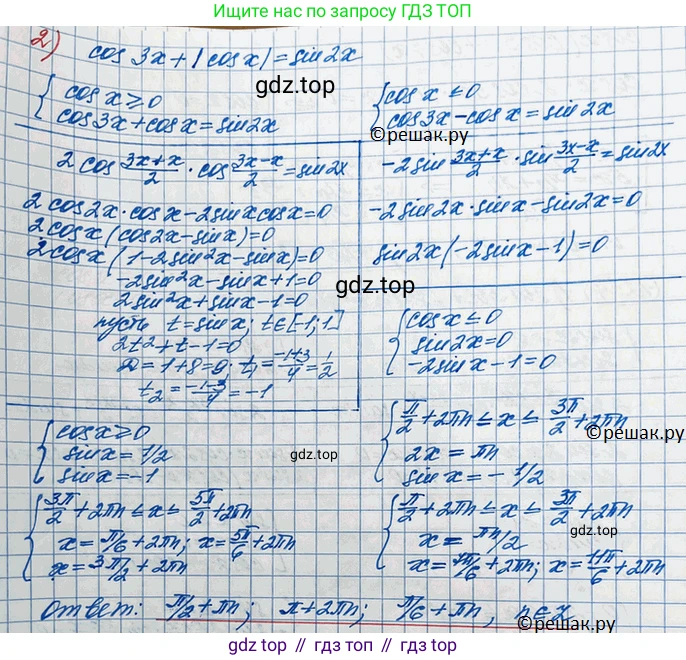 Ищите нас по запросу ГДЗ ТОП
2)
cos 3x + |cos x| = sin 2x
gdz.top
{ cos x ≥ 0
cos 3x + cos x = sin 2x
{ cos x ≤ 0
cos 3x - cos x = sin 2x
©решак.ру
2 cos (3x+x)/2 · cos (3x-x)/2 = sin 2x
2 cos 2x · cos x - 2 sin x cos x = 0
2 cos x (cos 2x - sin x) = 0
2 cos x (1 - 2 sin²x - sin x) = 0
-2 sin²x - sin x + 1 = 0
2 sin²x + sin x - 1 = 0
пусть t = sin x, t ∈ [-1; 1]
2t² + t - 1 = 0
D = 1 + 8 = 9; t₁ = (-1+3)/4 = 1/2
t₂ = (-1-3)/4 = -1
-2 sin (3x+x)/2 · sin (3x-x)/2 = sin 2x
-2 sin 2x · sin x - sin 2x = 0
sin 2x (-2 sin x - 1) = 0
gdz.top
{ cos x ≤ 0
sin 2x = 0
-2 sin x - 1 = 0
{ cos x ≥ 0
sin x = 1/2
sin x = -1
{ π/2 + 2πn ≤ x ≤ 3π/2 + 2πn
2x = πn
sin x = - 1/2
©решак.ру
gdz.top
{ 3π/2 + 2πn ≤ x ≤ 5π/2 + 2πn
x = π/6 + 2πn; x = 5π/6 + 2πn
x = 3π/2 + 2πn
{ π/2 + 2πn ≤ x ≤ 3π/2 + 2πn
x = πn/2
x = 7π/6 + 2πn; x = 11π/6 + 2πn
gdz.top
©решак.ру
Ответ: π/2 + πn; π + 2πn; π/6 + πn, n ∈ Z
gdz top // гдз топ // гдз.топ